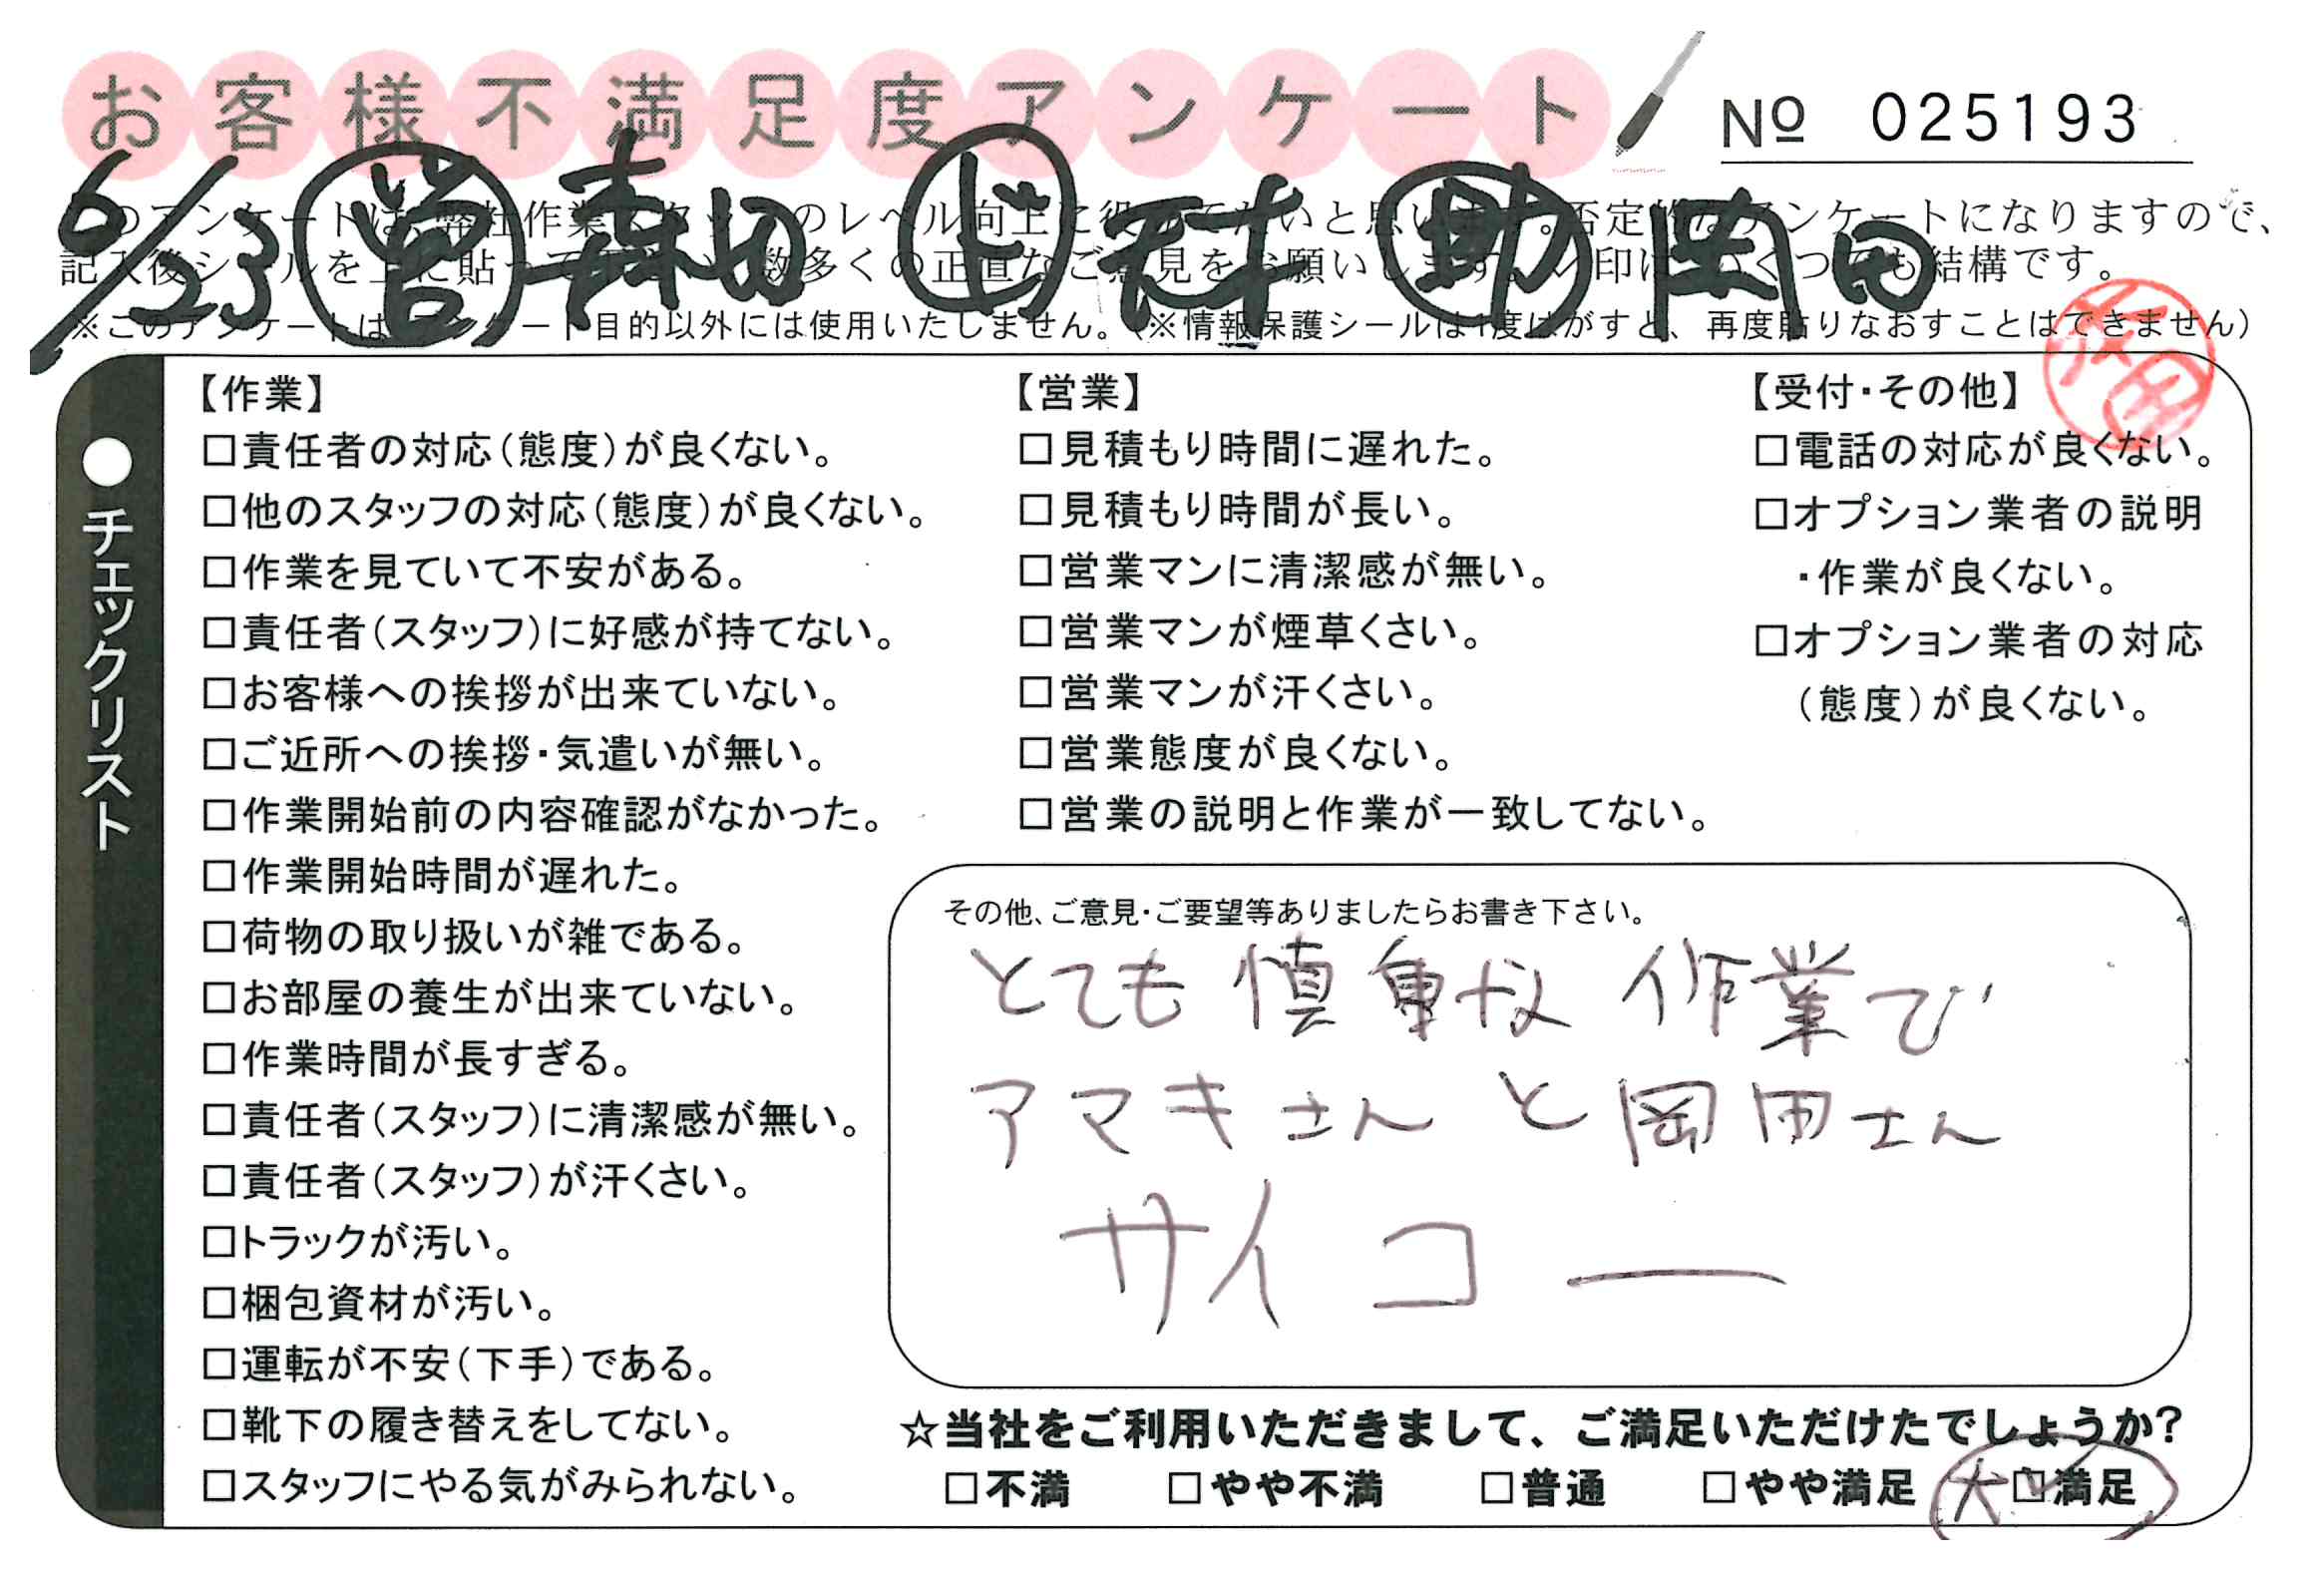 お客様不満足度アンケート
№ 025193
6/23 ㊂営 森田 ド 天木 助 岡田
このアンケートは、弊社作業スタッフのレベル向上に役立てたいと思います。否定的なアンケートになりますので、
記入後シールを上に貼って 数多くの正直なご意見をお願いします。レ印は、いくつでも結構です。
(※このアンケートは、アンケート目的以外には使用いたしません。)(※情報保護シールは1度はがすと、再度貼りなおすことはできません)
●チェックリスト
【作業】
□責任者の対応(態度)が良くない。
□他のスタッフの対応(態度)が良くない。
□作業を見ていて不安がある。
□責任者(スタッフ)に好感が持てない。
□お客様への挨拶が出来ていない。
□ご近所への挨拶・気遣いが無い。
□作業開始前の内容確認がなかった。
□作業開始時間が遅れた。
□荷物の取り扱いが雑である。
□お部屋の養生が出来ていない。
□作業時間が長すぎる。
□責任者(スタッフ)に清潔感が無い。
□責任者(スタッフ)が汗くさい。
□トラックが汚い。
□梱包資材が汚い。
□運転が不安(下手)である。
□靴下の履き替えをしてない。
□スタッフにやる気がみられない。
【営業】
□見積もり時間に遅れた。
□見積もり時間が長い。
□営業マンに清潔感が無い。
□営業マンが煙草くさい。
□営業マンが汗くさい。
□営業態度が良くない。
□営業の説明と作業が一致してない。
【受付・その他】
□電話の対応が良くない。
□オプション業者の説明
・作業が良くない。
□オプション業者の対応
(態度)が良くない。
その他、ご意見・ご要望等ありましたらお書き下さい。
とても慎重な作業で
アマキさんと岡田さん
サイコー
☆当社をご利用いただきまして、ご満足いただけたでしょうか?
□不満 □やや不満 □普通 □やや満足 大☑満足